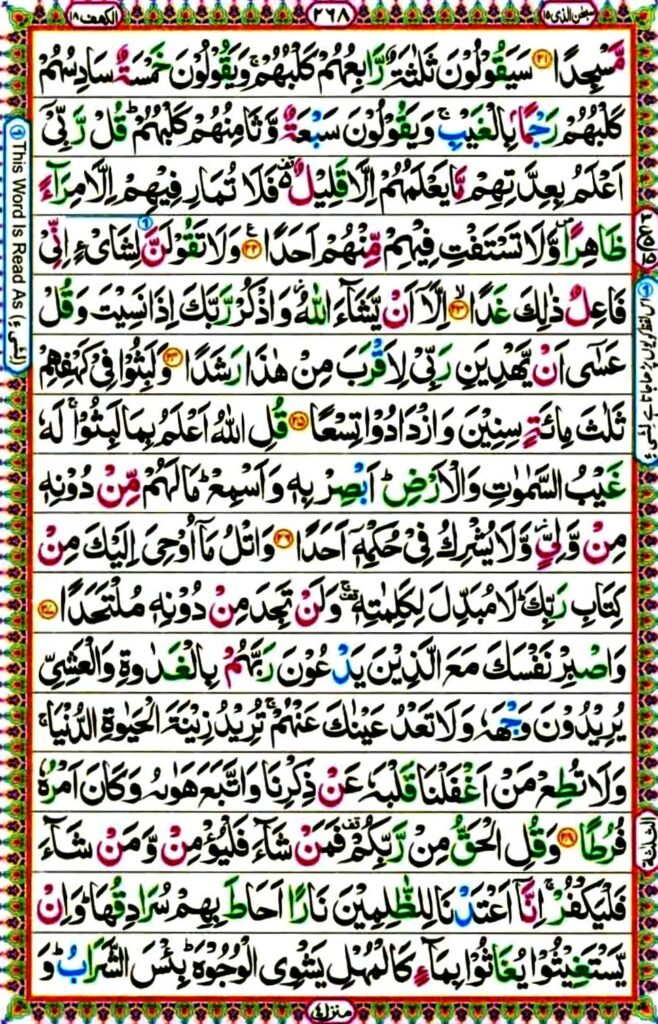 سبحن الذی ۱۵
۲۶۸
الکهف ۱۸
مَّسْجِدًا ﴿۲۱﴾ سَيَقُوْلُوْنَ ثَلٰثَةٌ رَّابِعُهُمْ كَلْبُهُمْ ۚ وَيَقُوْلُوْنَ خَمْسَةٌ سَادِسُهُمْ
كَلْبُهُمْ رَجْمًۢا بِالْغَيْبِ ۚ وَيَقُوْلُوْنَ سَبْعَةٌ وَّثَامِنُهُمْ كَلْبُهُمْ ؕ قُلْ رَّبِّيْۤ
اَعْلَمُ بِعِدَّتِهِمْ مَّا يَعْلَمُهُمْ اِلَّا قَلِيْلٌ ۫ فَلَا تُمَارِ فِيْهِمْ اِلَّا مِرَآءً
ظَاهِرًا ۪ وَّلَا تَسْتَفْتِ فِيْهِمْ مِّنْهُمْ اَحَدًا ﴿۲۲﴾ وَلَا تَقُوْلَنَّ لِشَايْءٍ اِنِّيْ
فَاعِلٌ ذٰلِكَ غَدًا ﴿۲۳﴾ اِلَّاۤ اَنْ يَّشَآءَ اللّٰهُ ؗ وَاذْكُرْ رَّبَّكَ اِذَا نَسِيْتَ وَقُلْ
عَسٰۤى اَنْ يَّهْدِيَنِ رَبِّيْ لِاَقْرَبَ مِنْ هٰذَا رَشَدًا ﴿۲۴﴾ وَلَبِثُوْا فِيْ كَهْفِهِمْ
ثَلٰثَ مِائَةٍ سِنِيْنَ وَازْدَادُوْا تِسْعًا ﴿۲۵﴾ قُلِ اللّٰهُ اَعْلَمُ بِمَا لَبِثُوْا ۚ لَهٗ
غَيْبُ السَّمٰوٰتِ وَالْاَرْضِ ؕ اَبْصِرْ بِهٖ وَاَسْمِعْ ؕ مَا لَهُمْ مِّنْ دُوْنِهٖ
مِنْ وَّلِيٍّ ؗ وَّلَا يُشْرِكُ فِيْ حُكْمِهٖۤ اَحَدًا ﴿۲۶﴾ وَاتْلُ مَاۤ اُوْحِيَ اِلَيْكَ مِنْ
كِتَابِ رَبِّكَ ؕ لَا مُبَدِّلَ لِكَلِمٰتِهٖ ۫ۚ وَلَنْ تَجِدَ مِنْ دُوْنِهٖ مُلْتَحَدًا ﴿۲۷﴾
وَاصْبِرْ نَفْسَكَ مَعَ الَّذِيْنَ يَدْعُوْنَ رَبَّهُمْ بِالْغَدٰوةِ وَالْعَشِيِّ
يُرِيْدُوْنَ وَجْهَهٗ وَلَا تَعْدُ عَيْنٰكَ عَنْهُمْ ۚ تُرِيْدُ زِيْنَةَ الْحَيٰوةِ الدُّنْيَا ۚ
وَلَا تُطِعْ مَنْ اَغْفَلْنَا قَلْبَهٗ عَنْ ذِكْرِنَا وَاتَّبَعَ هَوٰىهُ وَكَانَ اَمْرُهٗ
فُرُطًا ﴿۲۸﴾ وَقُلِ الْحَقُّ مِنْ رَّبِّكُمْ ۫ فَمَنْ شَآءَ فَلْيُؤْمِنْ وَّمَنْ شَآءَ
فَلْيَكْفُرْ ۙ اِنَّاۤ اَعْتَدْنَا لِلظّٰلِمِيْنَ نَارًا ۙ اَحَاطَ بِهِمْ سُرَادِقُهَا ؕ وَاِنْ
يَّسْتَغِيْثُوْا يُغَاثُوْا بِمَآءٍ كَالْمُهْلِ يَشْوِي الْوُجُوْهَ ؕ بِئْسَ الشَّرَابُ ؕ وَ
This Word Is Read As (لِشَیْءٍ)
اس لفظ کو یوں پڑھا جاتا ہے لِشَیْءٍ
منزل ۴